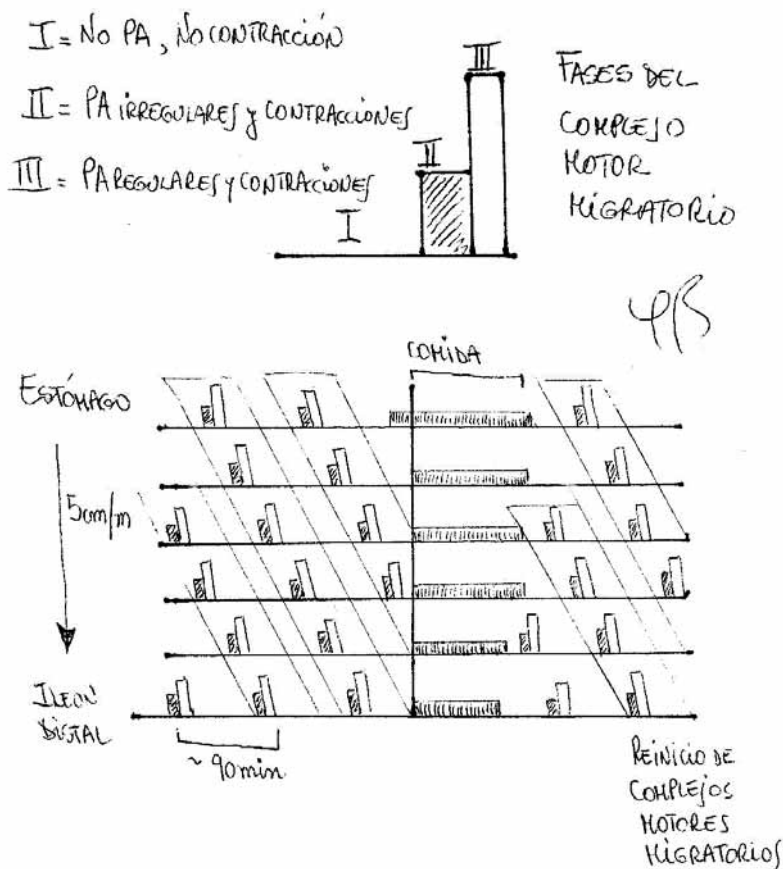 I = NO PA, NO CONTRACCIÓN
II = PA IRREGULARES y CONTRACCIONES
III = PA REGULARES y CONTRACCIONES
I
II
III
FASES DEL
COMPLEJO
MOTOR
MIGRATORIO
COMIDA
ESTÓMAGO
5cm/m
ILEON
DISTAL
~ 90min
REINICIO DE
COMPLEJOS
MOTORES
MIGRATORIOS